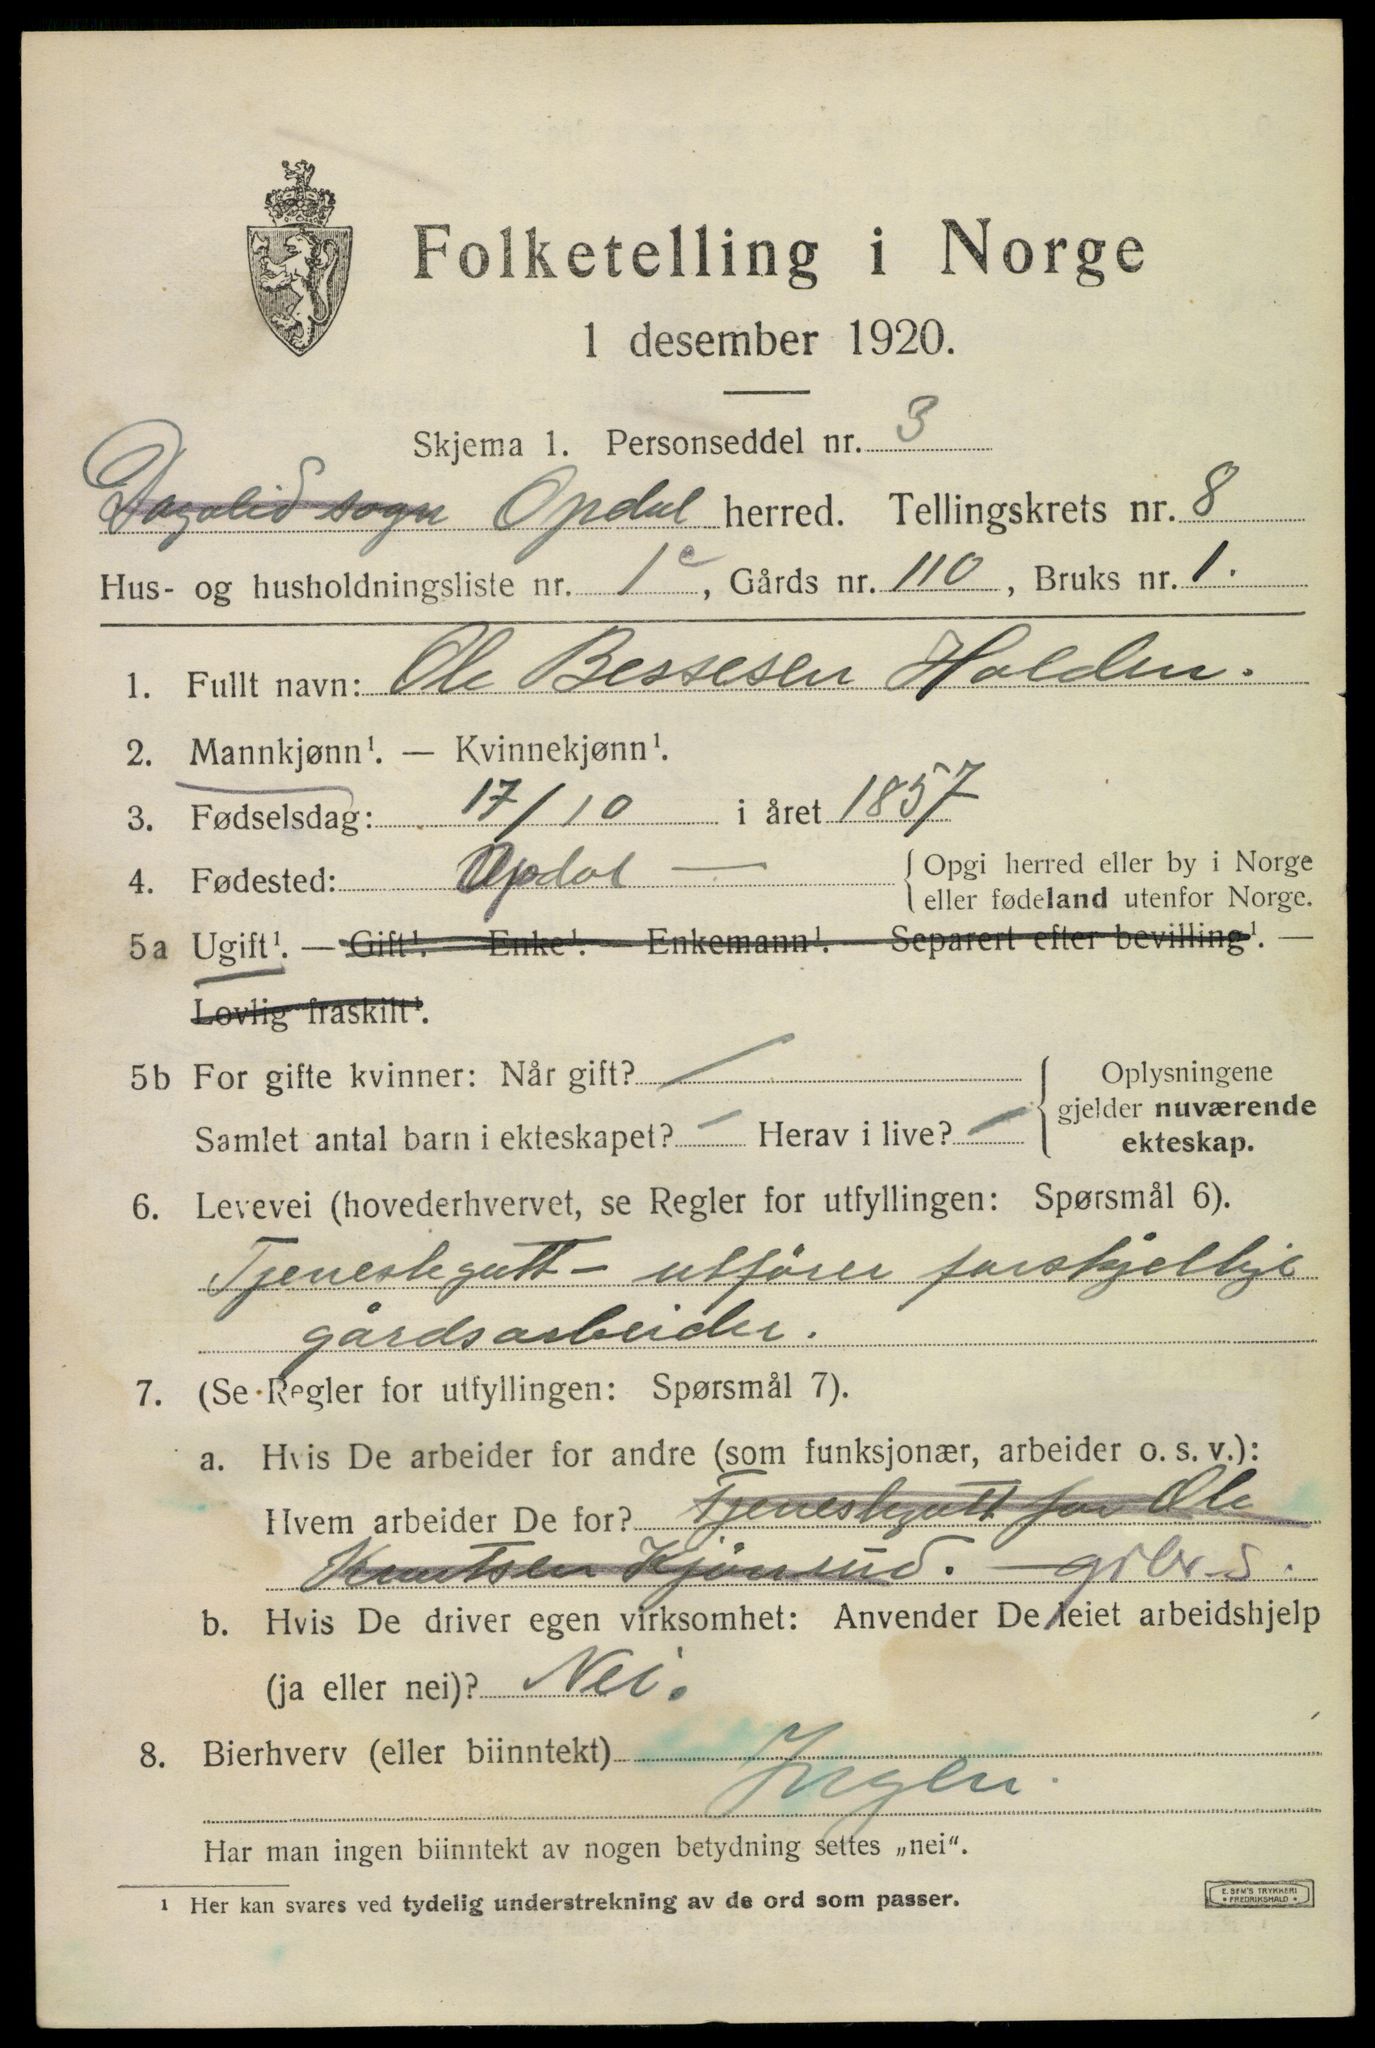 Folketelling i Norge
1 desember 1920.
Skjema 1. Personseddel nr. 3
Dagalid sogn Opdal herred. Tellingskrets nr. 8
Hus- og husholdningsliste nr. 1c, Gårds nr. 110, Bruks nr. 1.
1. Fullt navn: Ole Bessesen Holden.
2. Mannkjønn¹. — Kvinnekjønn¹.
3. Fødselsdag: 17/10 i året 1857
4. Fødested: Opdal — { Opgi herred eller by i Norge
eller fødeland utenfor Norge.
5a Ugift¹. — Gift¹. — Enke¹. — Enkemann¹. — Separert efter bevilling¹. —
Lovlig fraskilt¹.
5b For gifte kvinner: Når gift? /
Samlet antal barn i ekteskapet? / Herav i live? /
Oplysningene
gjelder nuværende
ekteskap.
6. Levevei (hovederhvervet, se Regler for utfyllingen: Spørsmål 6).
Tjenestegutt - utfører forskjellige
gårdsarbeider.
7. (Se Regler for utfyllingen: Spørsmål 7).
a. Hvis De arbeider for andre (som funksjonær, arbeider o. s. v.):
Hvem arbeider De for? Tjenestegutt for Ole
Knutsen Kjönsud.
b. Hvis De driver egen virksomhet: Anvender De leiet arbeidshjelp
(ja eller nei)? Nei.
8. Bierhverv (eller biinntekt) Ingen.
Har man ingen biinntekt av nogen betydning settes „nei“.
¹ Her kan svares ved tydelig understrekning av de ord som passer.
E. SEM'S TRYKKERI
FREDRIKSHALD